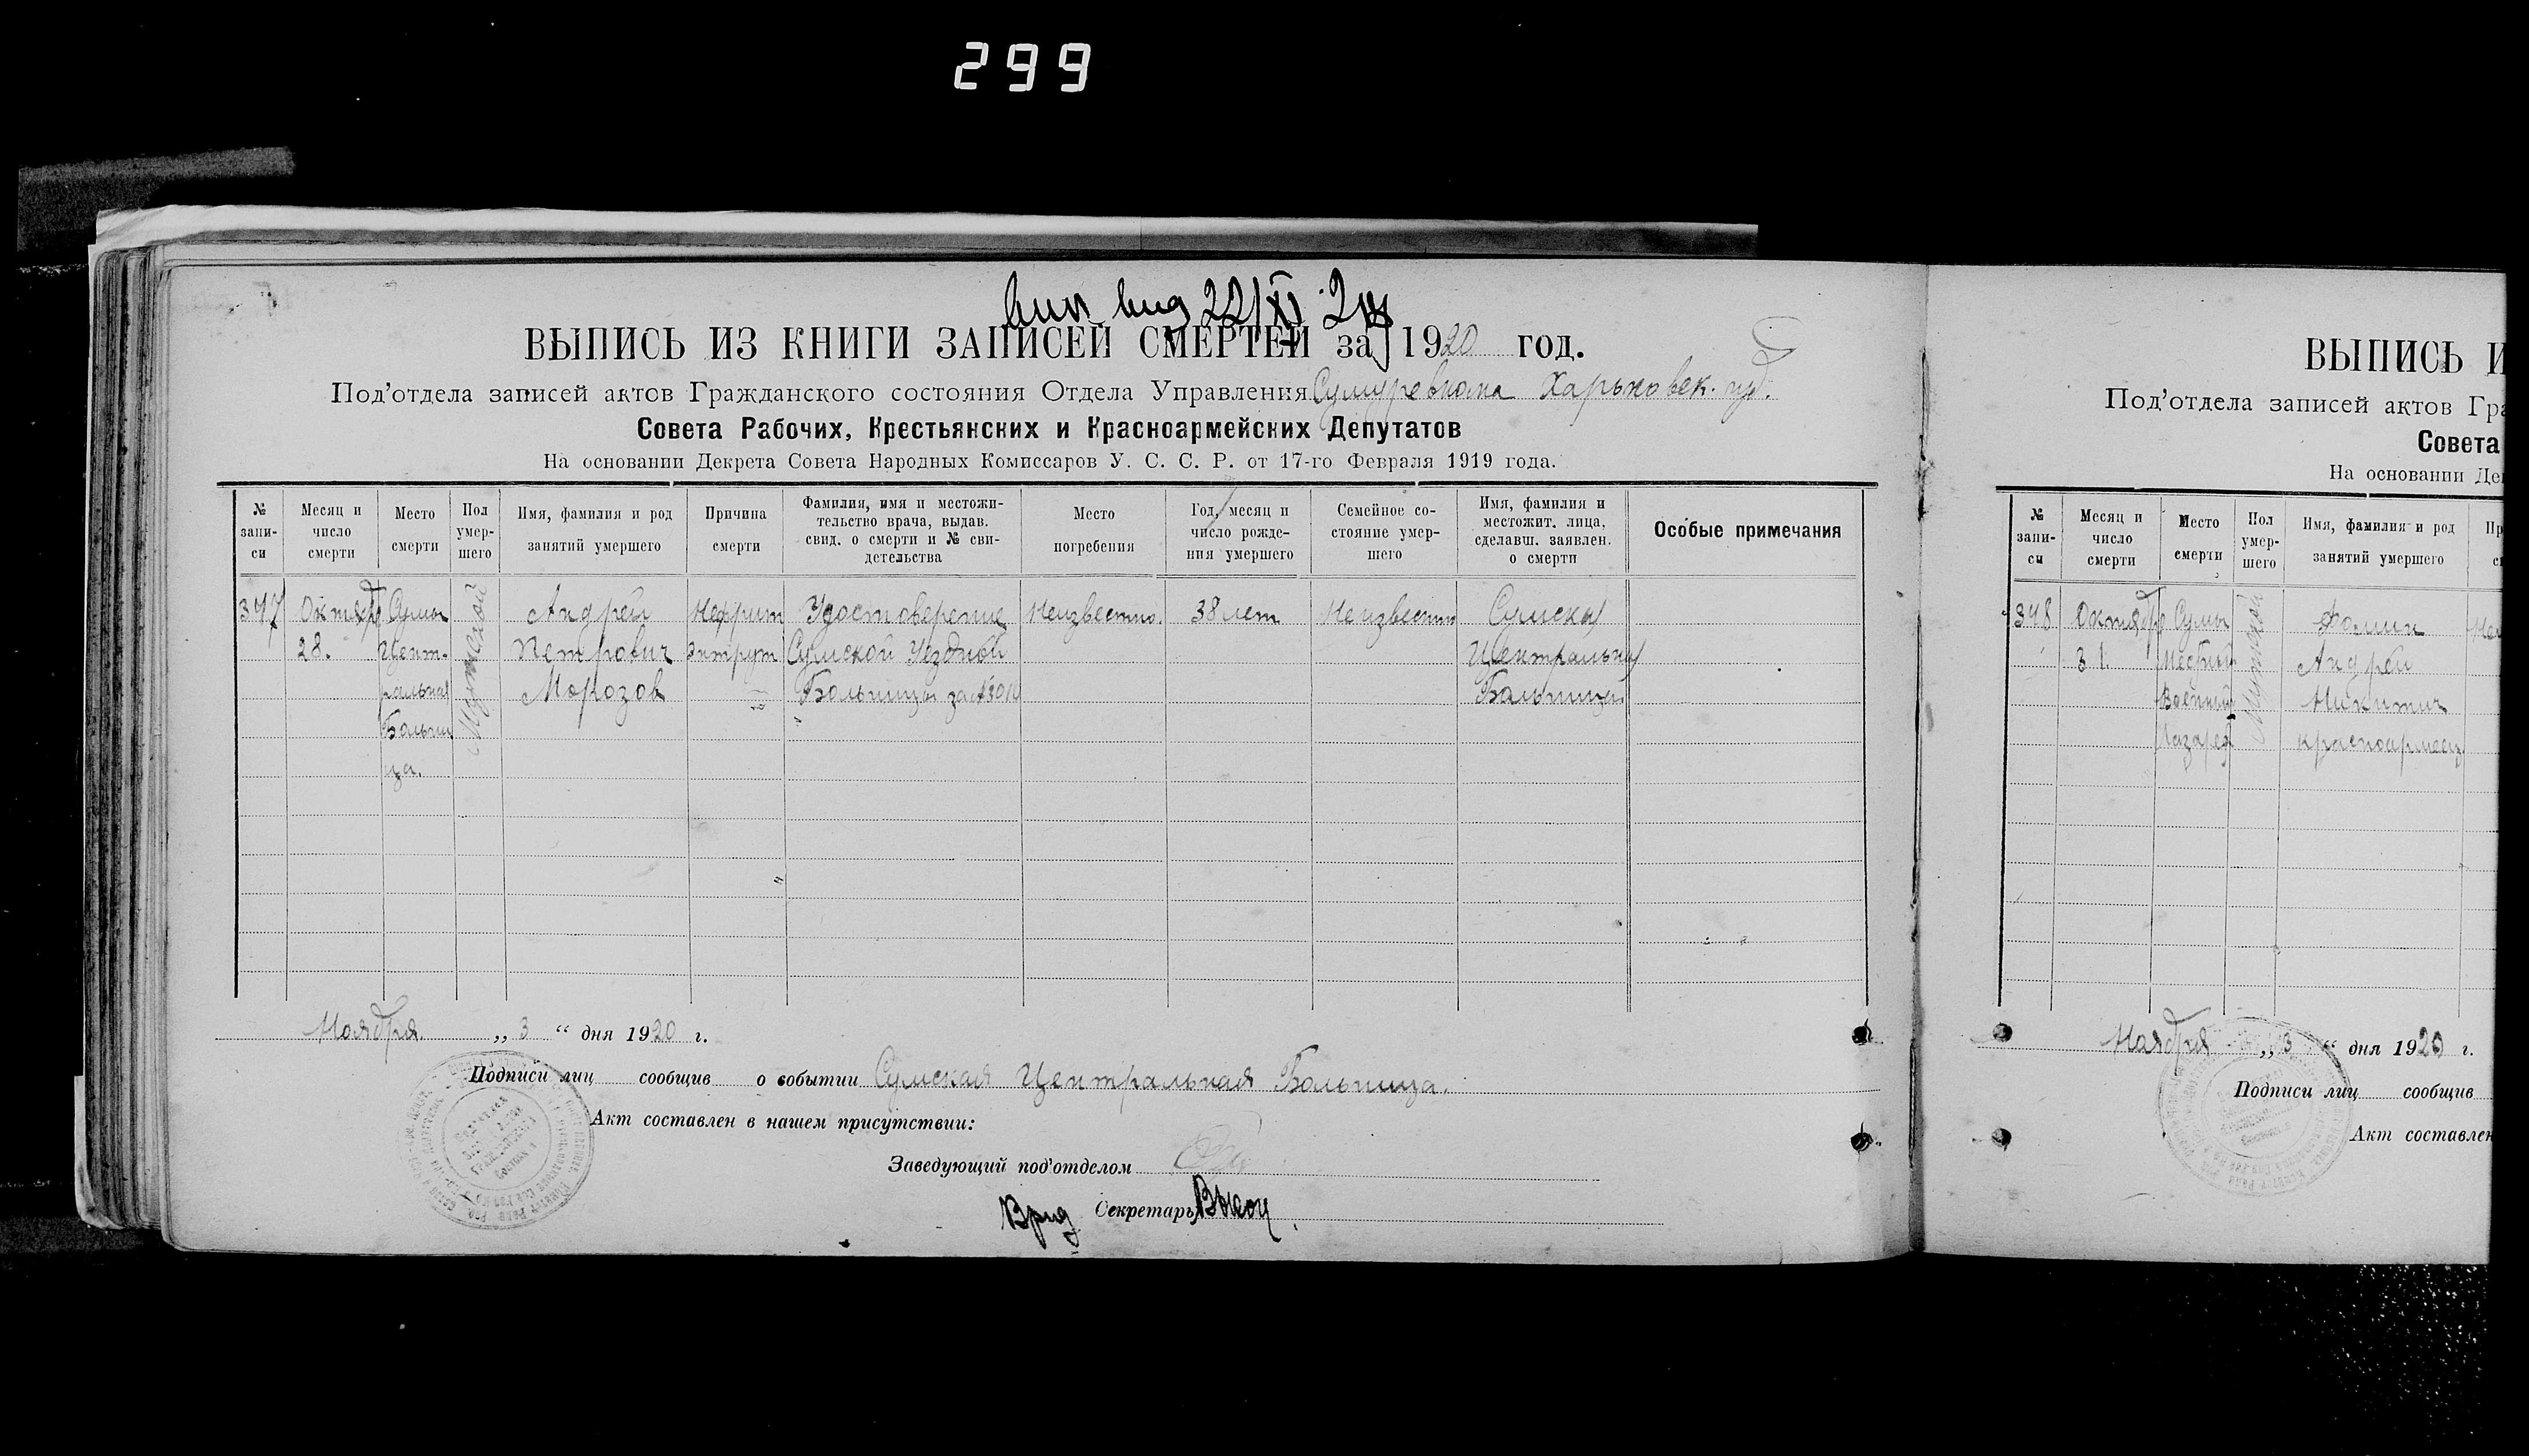 299
ВЫПИСЬ ИЗ КНИГИ ЗАПИСЕЙ СМЕРТЕЙ за 1920 год.
Под'отдела записей актов Гражданского состояния Отдела Управления Сумуревкома Харьковск. губ.
Совета Рабочих, Крестьянских и Красноармейских Депутатов
На основании Декрета Совета Народных Комиссаров У. С. С. Р. от 17-го Февраля 1919 года.
№ запи-
си
Месяц и
число
смерти
Место
смерти
Пол
умер-
шего
Имя, фамилия и род
занятий умершего
Причина
смерти
Фамилия, имя и местожи-
тельство врача, выдав.
свид. о смерти и № сви-
детельства
Место
погребения
Год, месяц и
число рожде-
ния умершего
Семейное со-
стояние умер-
шего
Имя, фамилия и
местожит. лица,
сделавш. заявлен.
о смерти
Особые примечания
347
Октяб
28.
Сумы
Цент-
ральная
Больни
ца.
Мужской
Андрей
Петрович
Морозов
Нефрит
Удостоверение
Сумской Уездной
Больницы за №
Неизвестно.
38 лет
Неизвестно
Сумская
Центральная
Больница
Ноября. „ 3 “ дня 1920 г.
Подписи лиц сообщив о событии Сумская Центральная Больница.
Акт составлен в нашем присутствии:
Заведующий под'отделом
Врид Секретарь
ВЫПИСЬ И
Под'отдела записей актов Гра
Совета
На основании Де
№
запи-
си
Месяц и
число
смерти
Место
смерти
Пол
умер-
шего
Имя, фамилия и род
занятий умершего
Пр
348
Октябр
31.
Сумы
Военный
Лазарет
Мужской
Фомин
Андрей
Никитич
красноармеец
Ноября „ 3 “ дня 1920 г.
Подписи лиц сообщив
Акт составлен